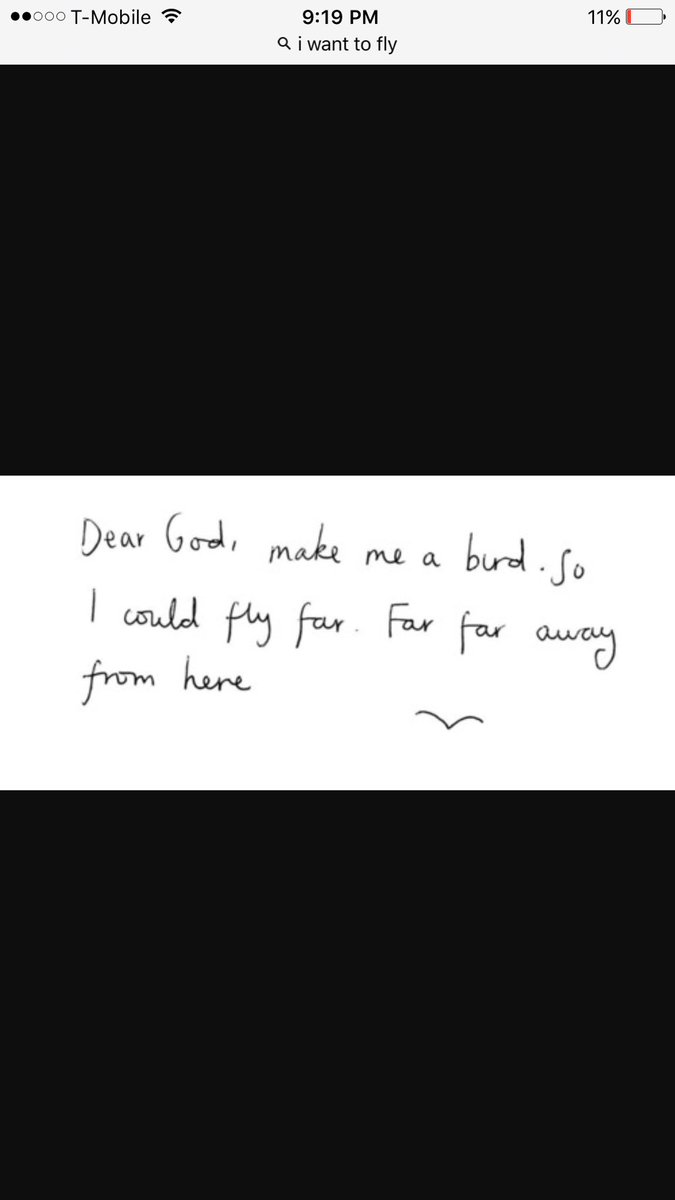 T-Mobile 9:19 PM 11%
i want to fly
Dear God, make me a bird. So
I could fly far. Far far away
from here